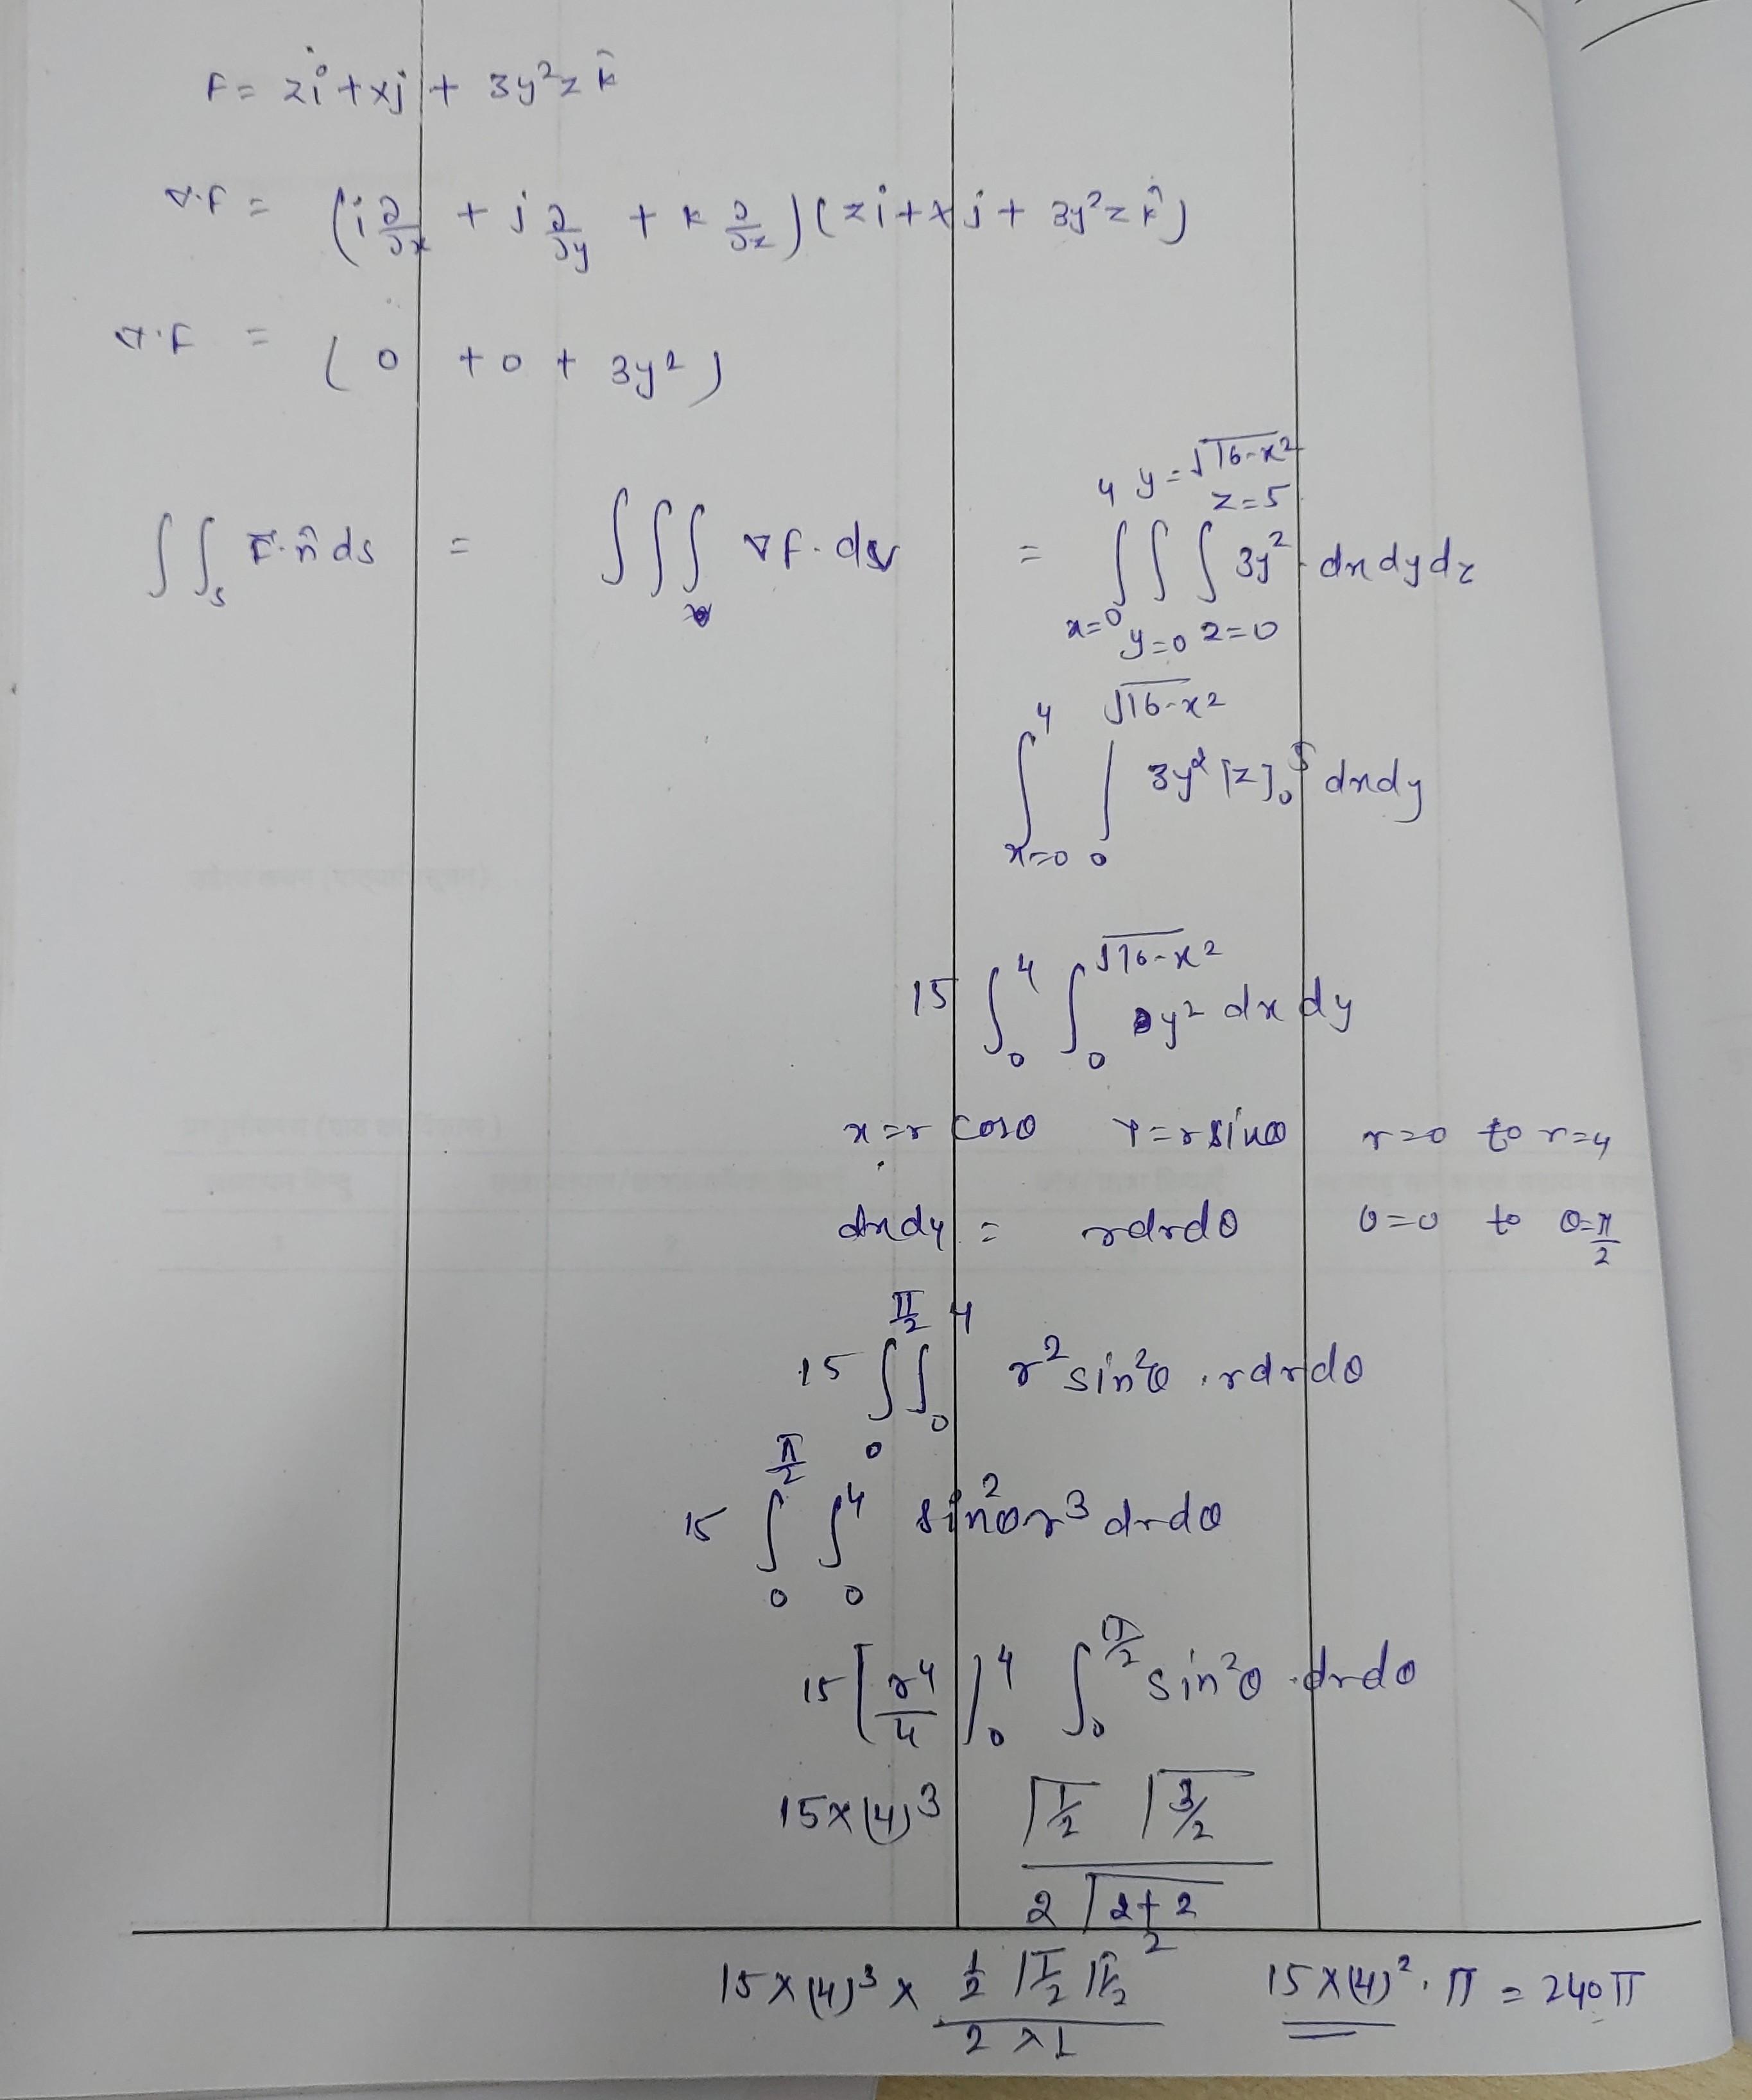 F = zi + xj + 3y²z k̂
∇·F = (i ∂/∂x + j ∂/∂y + k ∂/∂z)(zi + xj + 3y²z k̂)
∇·F = (0 + 0 + 3y²)
∫∫_S F·n̂ ds = ∫∫∫_v ∇F·dv = ∫_{x=0}^{4} ∫_{y=0}^{y=√(16-x²)} ∫_{z=0}^{z=5} 3y² dxdydz
∫_{x=0}^{4} ∫_0^{√(16-x²)} 3y² [z]_0^5 dxdy
15 ∫_0^4 ∫_0^{√(16-x²)} y² dx dy
x = r cosθ y = r sinθ r=0 to r=4
dxdy = rdrdθ θ=0 to θ=π/2
15 ∫_0^{π/2} ∫_0^4 r² sin²θ . rdrdθ
15 ∫_0^{π/2} ∫_0^4 sin²θ r³ drdθ
15 [r⁴/4]_0^4 ∫_0^{π/2} sin²θ . drdθ
15×(4)³ (Γ1/2 Γ3/2) / (2 Γ(2+2)/2)
15×(4)³ × (1/2 Γ1/2 Γ1/2) / (2×1) 15×(4)² . π = 240π